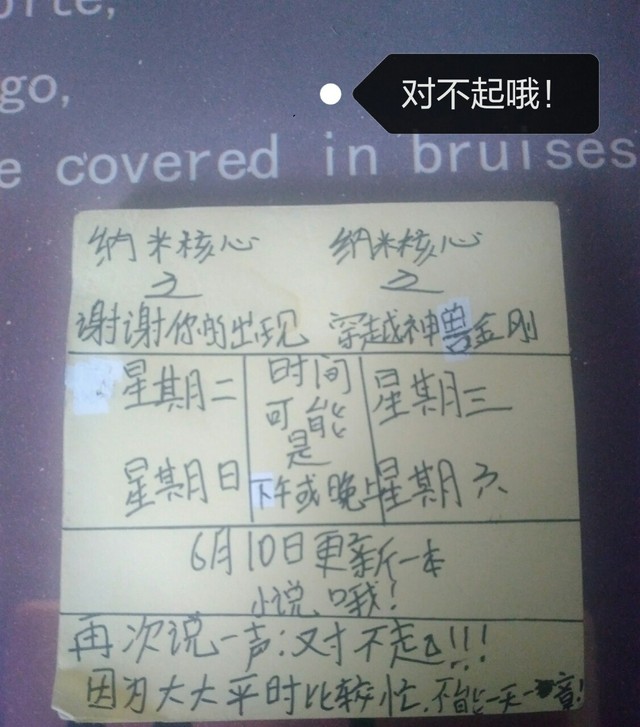 orte,
go,
对不起哦!
e covered in bruises
纳米核心 纳米核心
之 之
谢谢你的出现 穿越神兽金刚
星期二 时间 星期三
可能
是
星期日 下午或晚上 星期六
6月10日更新一本
小说、哦!
再次说一声:对不起!!!
因为大大平时比较忙,不能一天一章!